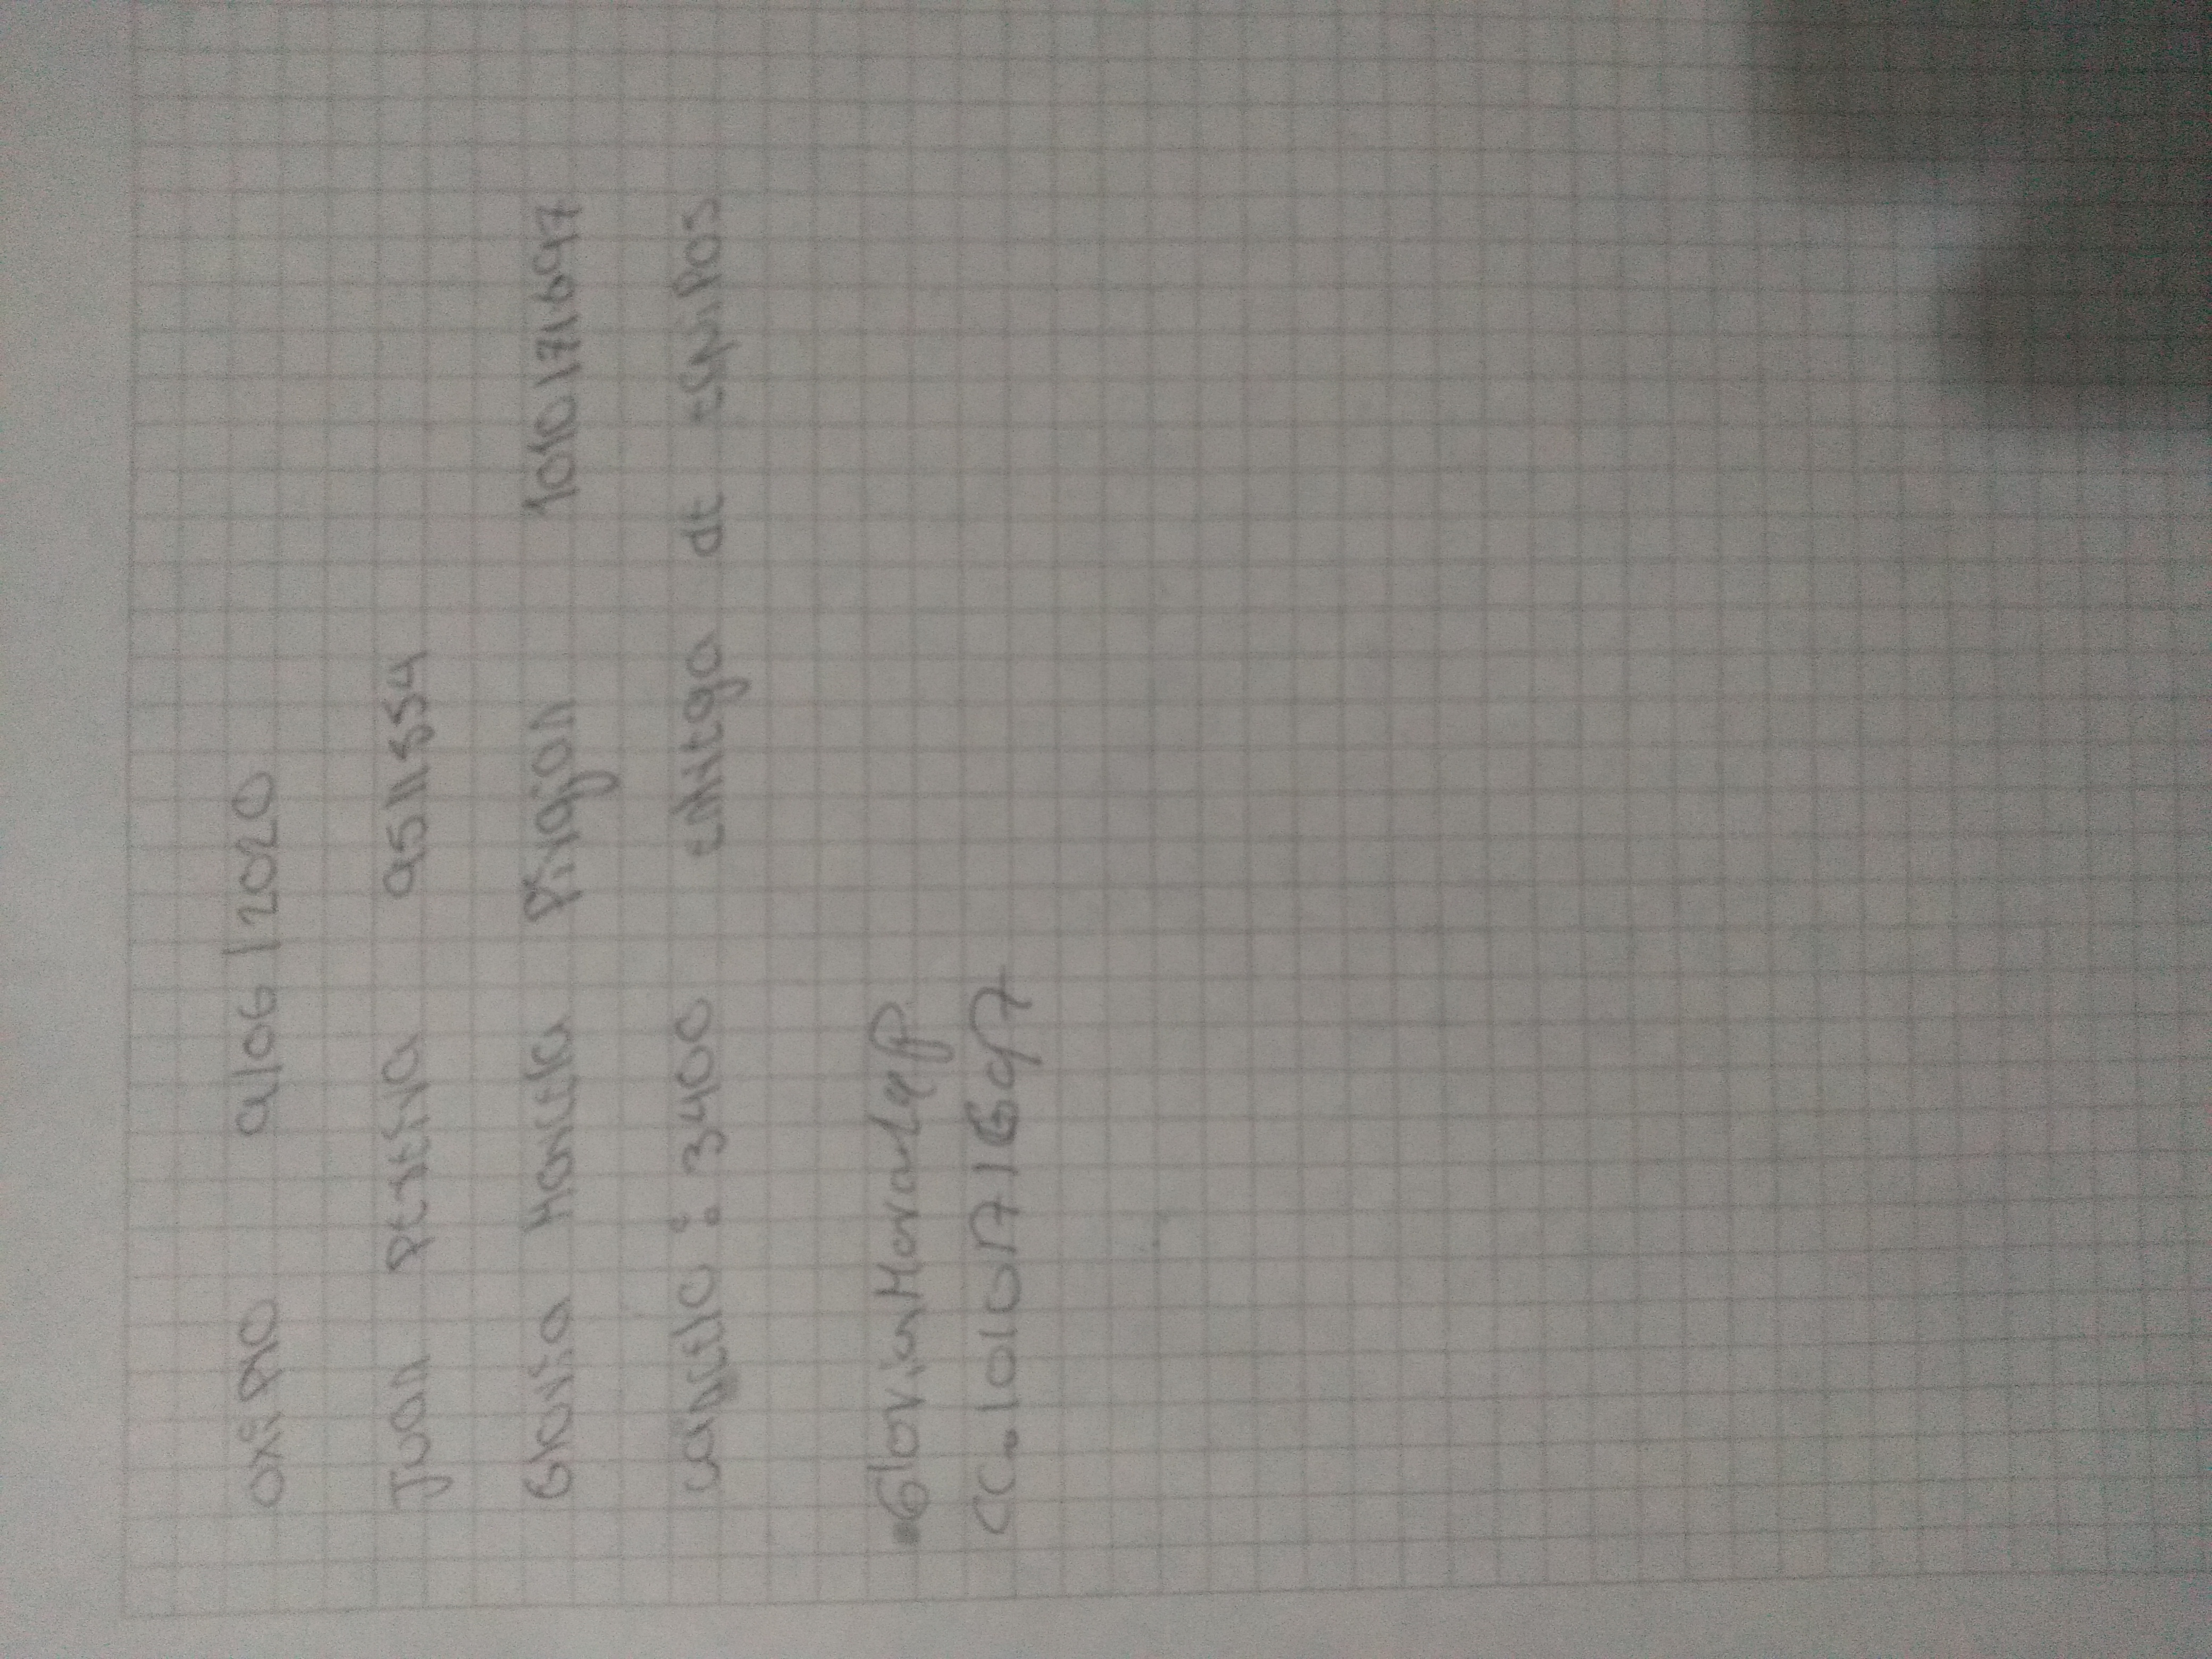 OxiPRO 9/06/2020
Juan Pereira 9511554
Gloria Marcela Pinzon 1010171697
cancelo: 3400 entrega de equipos
Gloria Marcela P
CC. 1010171697